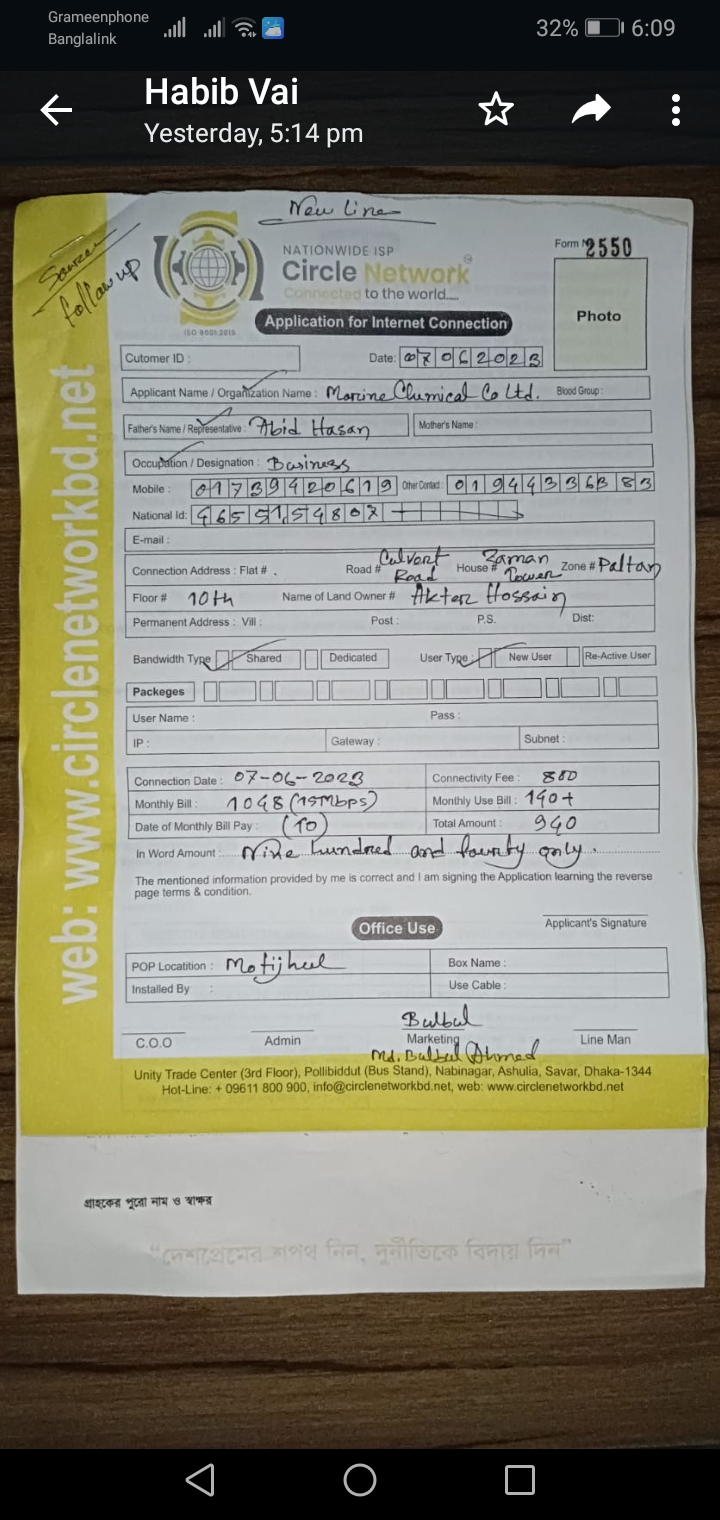 Grameenphone
Banglalink
32% 6:09
Habib Vai
Yesterday, 5:14 pm
New Line
follow up
NATIONWIDE ISP
Circle Network
Connected to the world....
ISO 9001:2015
Form No 2550
Photo
Application for Internet Connection
Cutomer ID :
Date: 07062023
Applicant Name / Organization Name : Marine Chemical Co Ltd. Blood Group :
Father's Name / Representative : Abid Hasan Mother's Name :
Occupation / Designation : Business
Mobile : 01739420619 Other Contact :
National Id:
E-mail :
Connection Address : Flat # . Road # Culvert Road House # Zaman Tower Zone # Paltan
Floor # 10th Name of Land Owner # Akter Hossain
Permanent Address : Vill : Post : P.S. Dist:
Bandwidth Type Shared Dedicated User Type : New User Re-Active User
Packeges
User Name : Pass :
IP : Gateway : Subnet :
Connection Date : 07-06-2023 Connectivity Fee : 800
Monthly Bill : 1048 (15Mbps) Monthly Use Bill : 140+
Date of Monthly Bill Pay : (10) Total Amount : 940
In Word Amount : Nine hundred and fourty only.
The mentioned information provided by me is correct and I am signing the Application learning the reverse
page terms & condition.
Applicant's Signature
Office Use
POP Locatition : Motijheel Box Name :
Installed By : Use Cable :
Bulbul
C.O.O Admin Marketing Line Man
Md. Bulbul Ahmed
Unity Trade Center (3rd Floor), Pollibiddut (Bus Stand), Nabinagar, Ashulia, Savar, Dhaka-1344
Hot-Line: + 09611 800 900, info@circlenetworkbd.net, web: www.circlenetworkbd.net
web: www.circlenetworkbd.net
গ্রাহকের পুরো নাম ও স্বাক্ষর
“দেশপ্রেমের শপথ নিন, দুর্নীতিকে বিদায় দিন”